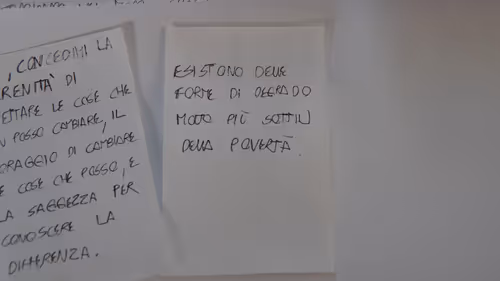 , CONCEDIMI LA
RENITÀ DI
ETTARE LE COSE CHE
POSSO CAMBIARE, IL
ORAGGIO DI CAMBIARE
E COSE CHE POSSO, E
LA SAGGEZZA PER
CONOSCERE LA
DIFFERENZA.
ESISTONO DELLE
FORME DI DEGRADO
MOLTO PIÙ SOTTILI
DELLA POVERTÀ.